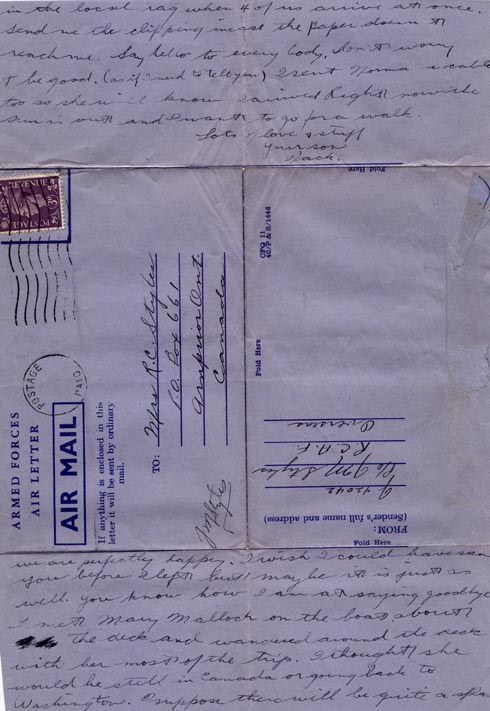 in the local rag when 4 of us arrive at once.
Send me the clipping incase the paper doesn't
reach me. Say hello to every body, don't worry
& be good. (as if I need to tell you.) I sent Norma a cable
too so she will know I arrived Right now the
sun is out and I want to go for a walk.
Lots of love & stuff
Your son
Jack.
Fold Here
POSTAGE REVENUE
POSTAGE
PAID
ARMED FORCES
AIR LETTER
AIR MAIL
If anything is enclosed in this
letter it will be sent by ordinary
mail.
TO: Mrs R.C. Styles
P.O. Box 661
Arnprior Ont
Canada
JM Styles
CFO 11
Fold Here
FROM:
(Sender's full name and address)
J M Styles
R.C.A.F.
Overseas
Fold Here
we are perfectly happy. I wish I could have seen
you before I left but maybe it is just as
well. you know how I am at saying goodbye
I met Mary Malloch on the boat about
the deck and wandered around the deck
with her most of the trip. I thought she
would be still in Canada or going back to
Washington. I suppose there will be quite a